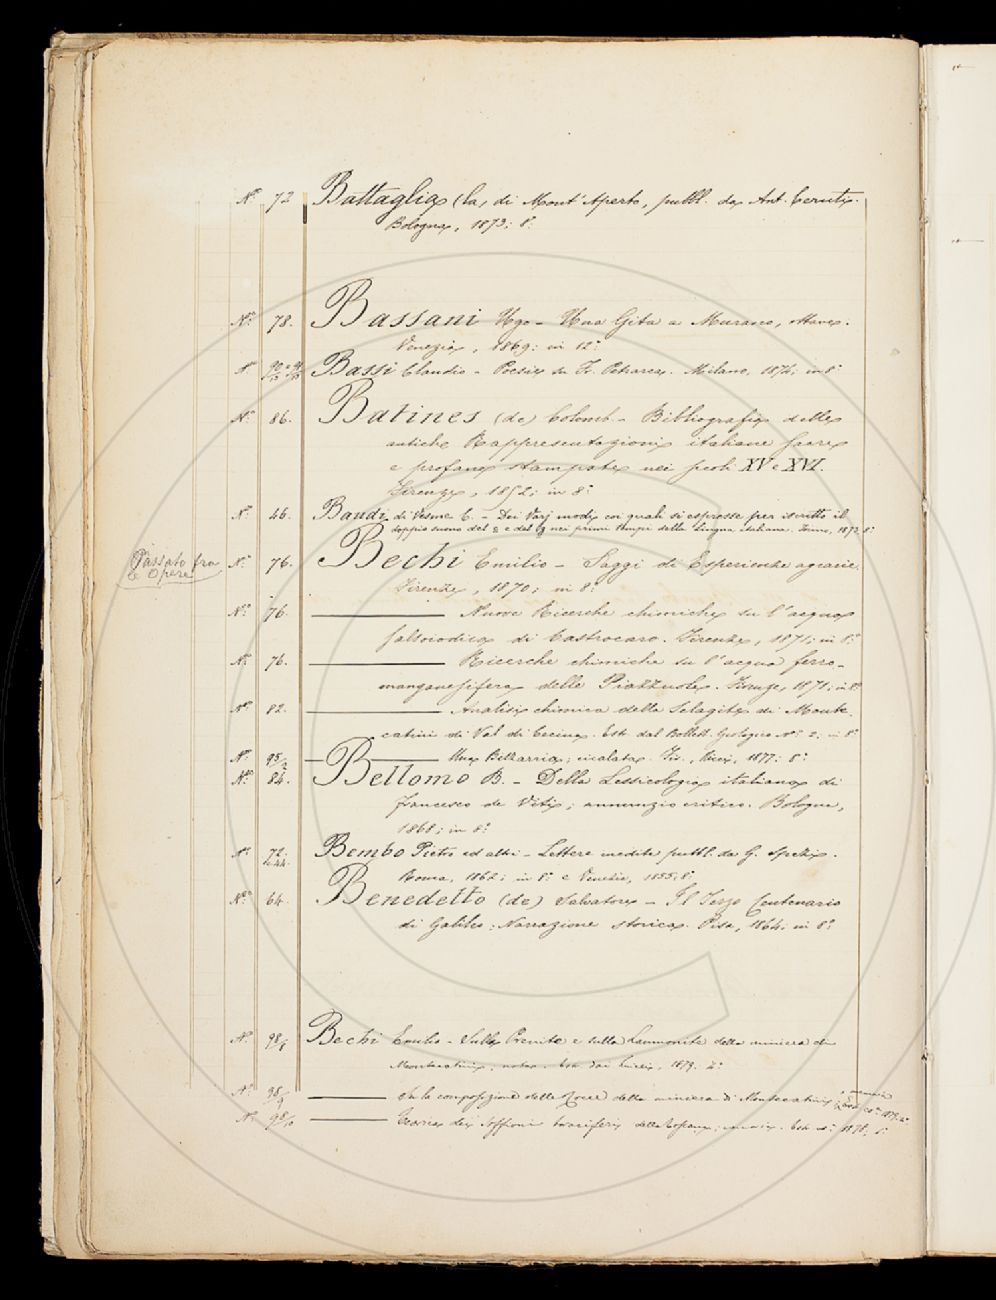 N.° 72 Battaglia (la) di Mont'Aperto, pubbl. da Ant. Ceruti.
Bologna, 1873; 8.°
N.° 78. Bassani Ugo - Una Gita a Murano, ottave.
Venezia, 1869: in 12.°
N.° Bassi Claudio - Poesia su Fr. Petrarca. Milano, 1874; in 8.°
N.° 86. Batines (de) Colomb. - Bibliografia delle
antiche Rappresentazioni italiane sacre
e profane stampate nei secoli XV e XVI.
Firenze, 1852; in 8.°
N.° 46. Baudi di Vesme C. - Dei Varj modi coi quali si espresse per iscritto il
doppio suono del e del nei primi tempi della lingua italiana. Torino, 1872, 8.°
Passato fra
le Opere
N.° 76. Bechi Emilio - Saggi di Esperienze agrarie.
Firenze, 1870; in 8.°
N.° 76. ——— Nuove Ricerche chimiche su l'acqua
salsoiodica di Castrocaro. Firenze, 1871; in 8.°
N.° 76. ——— Ricerche chimiche su l'acqua ferro-
manganesifera delle Piazzuole. Firenze, 1871; in 8.°
N.° 82. ——— Analisi chimica della Selagite di Monte-
catini di Val di Cecina. Estr. dal Bollett. Geologico N.° 2; in 8.°
N.° 95/2 ——— Una Bizzarria; incalata. Fir., Ricci, 1877; 8.°
N.° 84. Bellomo B. - Della Lessicologia italiana di
Francesco de Vitis; annunzio critico. Bologna,
1868; in 8.°
N.° 72. 44. Bembo Pietro ed altri - Lettere inedite pubbl. da G. Spezi.
Roma, 1862; in 8.° e Venezia, 1855; 8.°
N.° 64. Benedetto (de) Salvatore - Il Terzo Centenario
di Galileo; Narrazione storica. Pisa, 1864; in 8.°
N.° 98/8 Bechi Emilio - Sulla Prenite e sulla Laumonite della miniera di
Montecatini; nota. Estr. dai Lincei, 1879. 4.°
N.° 98/9 ——— Su la composizione delle Rocce della miniera di Montecatini; memoria
Estr. 1879. 4.°
N.° 98/10 ——— Teoria dei Soffioni boraciferi della Toscana; Estr. 1878, 8.°